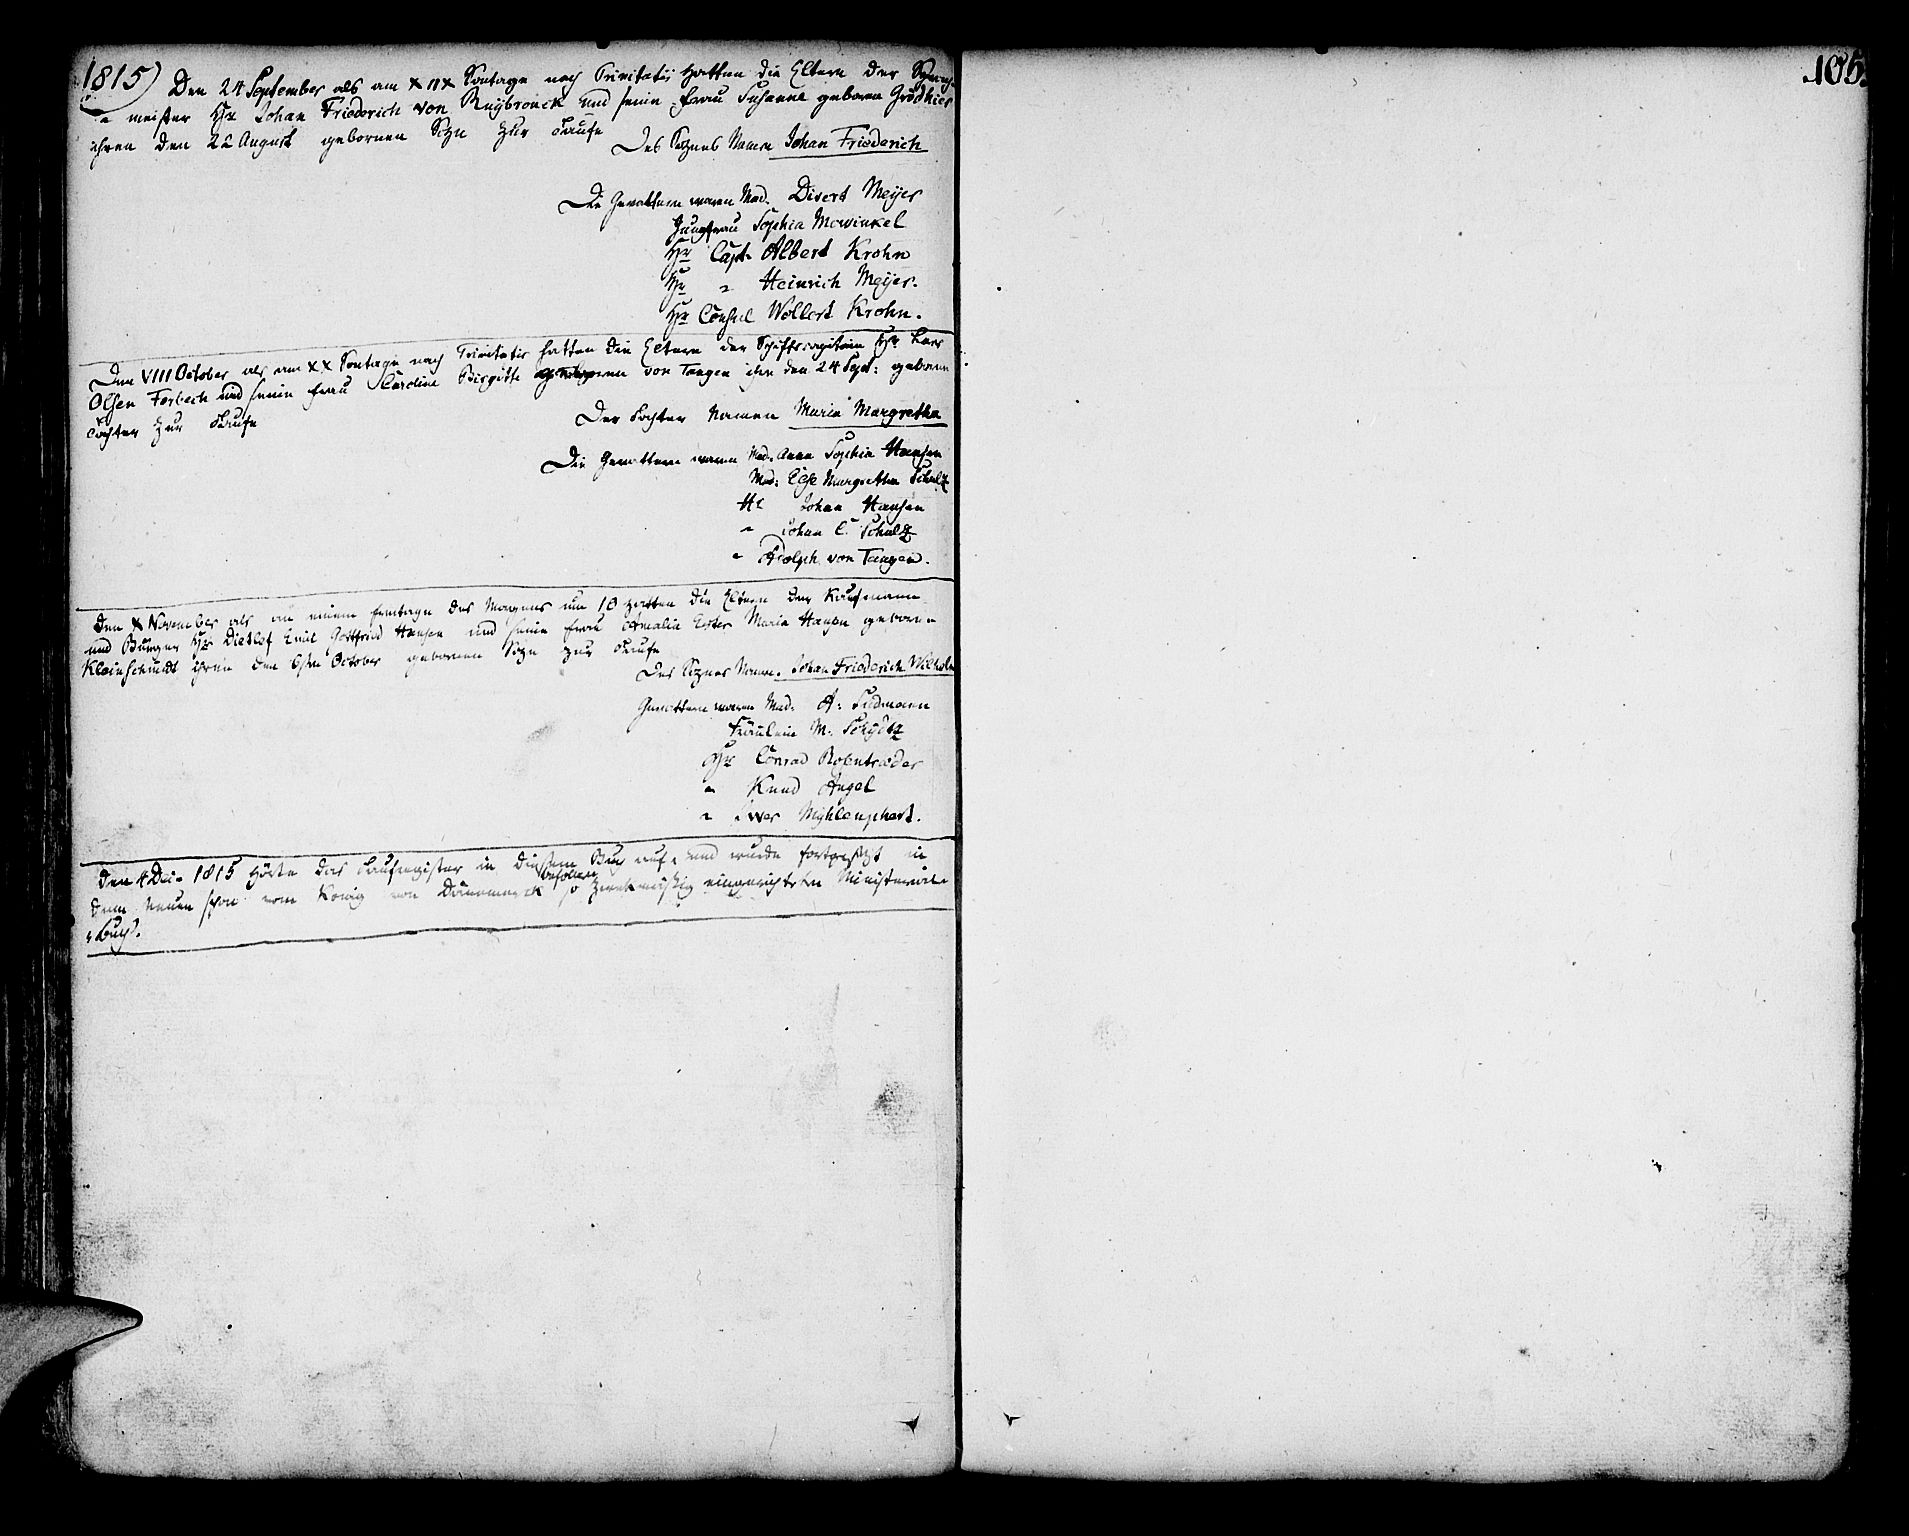 1815) Den 24 September als am XIIX Sontage nach Trinitatis hatten die Eltern der Sprach-
meister Hr Johan Friederich von Ruÿbronck und seine Frau Susanne geboren
ihren den 22 August gebornen Sohn zur Taufe
Des Sohnes Namen Johan Friederich
Die Gevattern waren Mad. Divert Meÿer
Jungfrau Sophia Mowinkel
Hr Capt. Albert Krohn
Hr " Heinrich Meÿer.
Hr Consul Wollert Krohn.
Den VIII October als am XX Sontage nach Trinitatis hatten die Eltern der Schiffscapitain Hr Lars
Olsen Forbech und seine Frau Caroline Birgitte von Tangen ihre den 24 Sept: geborne
Tochter zur Taufe
Der Tochter Namen Maria Margretha
Die Gevattern waren Mad. Anna Sophia Hansen
Mad: Else Margretha Schultz
Hr Johan Hansen
" Johan C. Schultz
" Adolph von Tangen.
Den X November als an einem Freitage des Morgens um 10 hatten die Eltern der Kaufmann
und Burger Hr Dietlof Emil Gottfried Hansen und seine Frau Amalia Ester Maria Hansen geborne
Kleinschmidt ihren den 6ten October gebornen Sohn zur Taufe
Des Sohnes Name. Johan Friederich Wilhelm
Gevattern waren Mad: A: Sudmann
Fräulein M. Schÿdtz
Hr Conrad Rohntræder
" Knud Angel
" Iwer Mÿhlenphort.
Den 4 Dec. 1815 hörte das Taufregister in diesem Buch auf, und wurde fortgesetzt in
dem neuen schon vom König von Dänemarck befohlenen so zweckmäßig eingerichteten Ministerial-
"Buch.
105.